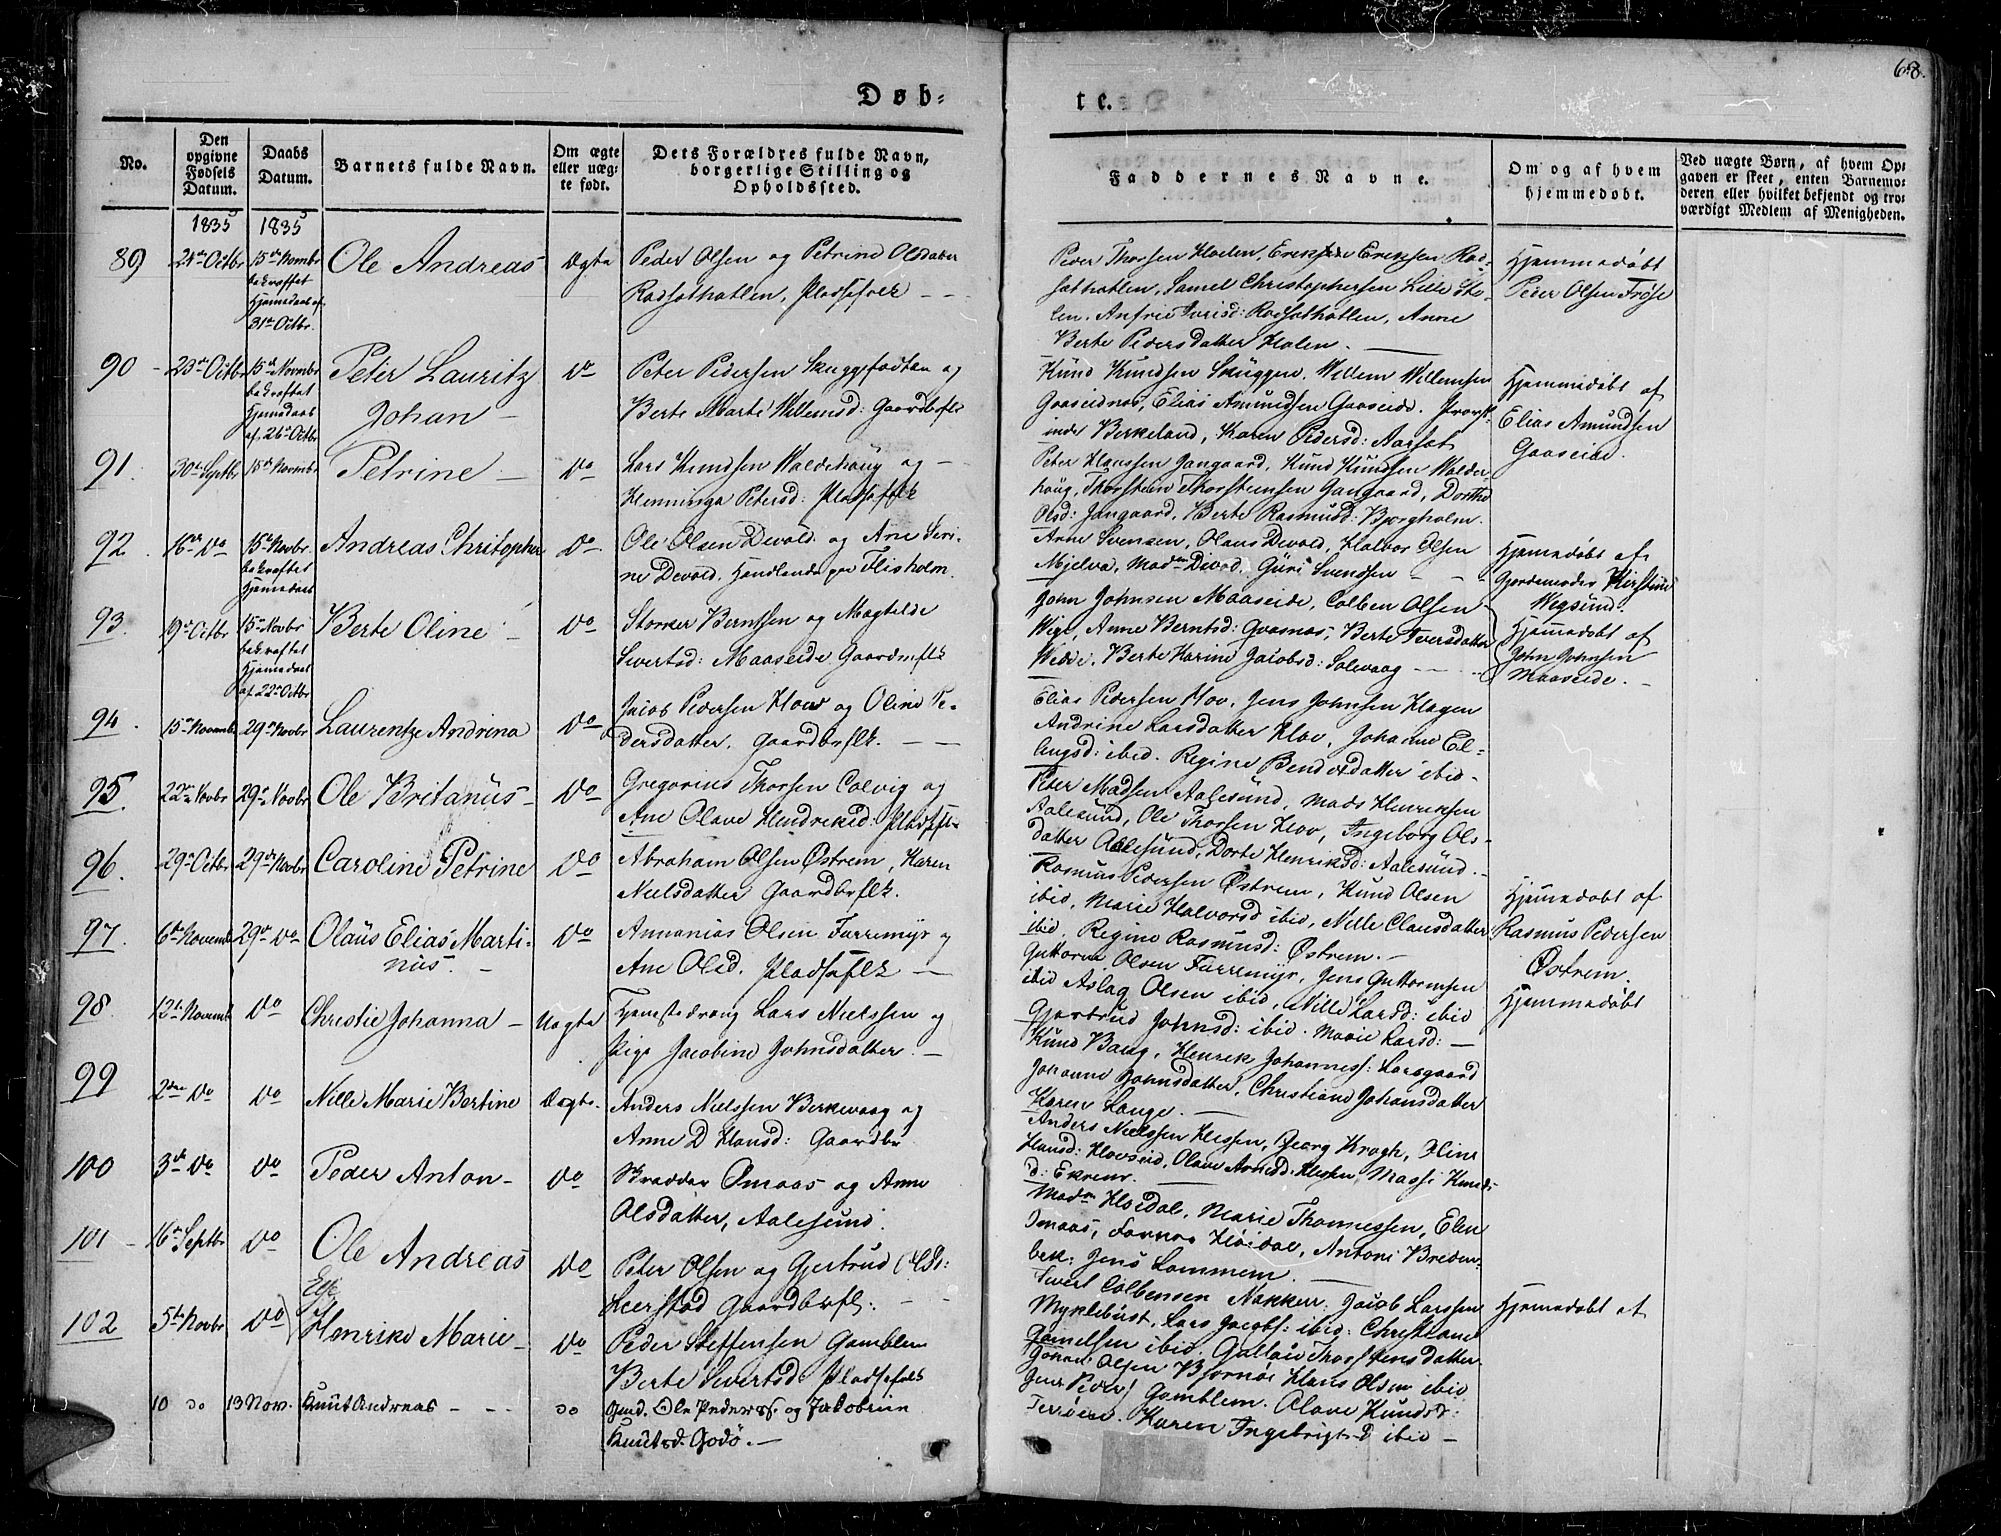 68.
Døb-
te.
No.
Den opgivne Fødsels Datum.
Daabs Datum.
Barnets fulde Navn.
Om ægte eller uægte født.
Dets Forældres fulde Navn, borgerlige Stilling og Opholdssted.
Faddernes Navne.
Om og af hvem hjemmedøbt.
Ved uægte Børn, af hvem Opgaven er skeet, enten Barnemoderen eller hvilket bekjendt og troværdigt Medlem af Menigheden.
1835 1835
89 Octbr 15de Novembr bekræftet Hjemedaab af 31te Octbr. Ole Andreas Ægte Peder Olsen og Petrine Olsdatter
Pladsefolk
Peder Thorsen
Samel Christophersen Lille
Anne
Berte Pedersdatter Holen.
Hjemmedøbt
Peder Olsen
90 23de Octbr 15de Novmbr bekræftet Hjemedaab af 26de Octbr Peter Lauritz Johan do Peter Pedersen og
Berte Marte Willemsd: Gaardbrflk
Knud Knudsen Skuggen. Willem Willemsen
Gaaseidnes, Elias Amundsen Gaaseide.
Berkeland, Karen Pedersd: Aarsæt
Hjemmedøbt af
Elias Amundsen
Gaaseide.
91. 30te Septbr 15de Novmbr Petrine do Lars Knudsen Walderhaug og
Henninga Petersd: Pladsefolk
Peter Hanssen Gangaard, Knud Knudsen Walder
haug, Thorstein Thorsteinsen Gangaard, Dorthe
Olsd: Gangaard, Berte Rasmusd: Bjorgholm.
92. 16de do 15de Novbr bekræftet Hjemedaab Andreas Chritopher do Ole Olsen Devold og Ane Seri-
ne Devold, Handlende paa Flisholm.
Arne Svensen, Claus Devold, Halvor Olsen
Mjelva, Madm Divold, Guri Svendsen
Hjemedøbt af
Gjordemoder Kirstine
Wegsund.
93. 19de Octbr 15de Novbr bekræftet Hjemedaab af 22de Octbr Berte Oline do Storker Berntsen og Magtelde
Sivertsd: Maaseide Gaardmflk
John Johnsen Maaseide, Colben Olsen
Wige, Anne Berntsd: Gaasnæs, Berte Iversdatter
Wedde, Berte Karine Jacobsd: Solevaag
Hjemedøbt af
John Johnsen
Maaseide.
94. 15de Novemb 29de Novbr Laurentze Andrina do Jacob Pedersen Hov og Oline Pe-
dersdatter, Gaardbrflk.
Elias Pedersen Hov, Jens Johnsen Hagen
Andrine Larsdatter Hov, Johanne El-
lingsd: ibid. Regine Bendexdatter ibid.
95. 22de Novbr 29de Novbr Ole Britanus do Gregorius Thorsen Colvig og
Ane Olave Hendriksd: Pladsfl
Peter Madsen Aalesund, Mads Henriksen
Aalesund, Ole Thorsen Hov, Ingeborg Ols-
datter Aalesund, Dorte Henriksd: Aalesund.
96. 29de Octbr 29de Novbr Caroline Petrine do Abraham Olsen Østrem, Karen
Nielsdatter Gaardbrflk.
Rasmus Pedersen Østrem, Knud Olsen
ibid, Marie Halvorsd ibid, Nille Clausdatter
ibid. Regine Rasmusd: Østrem.
Hjemedøbt af
Rasmus Pedersen
Østrem.
97. 6te Novemb 29de do Olaus Elias Marti-
nus. do Annanias Olsen Furremyr og
Ane Olsd. Pladsefolk
Guttorm Olsen Furremyr, Jens Guttormsen
ibid Aslag Olsen ibid, Nille Larsd: ibid
Gjertrud Johnsd: ibid. Marie Larsd:
Hjemmedøbt
98. 12te Novemb do Christie Johanna Uægte Tjenestedreng Lars Nielssen og
Pige Jacobine Johnsdatter.
Knud Baug, Henrik Johanness: Larsgaard
Johanne Johnsdatter, Christiane Johansdatter
Karen Lange.
99 2den do do Nille Marie Bertine Ægte. Anders Nielssen Berkevaag og
Anne D Hansd: Gaardbr
Anders Nielssen Hessen, Georg Krogh, Stine
Hansd: Hovseid, Olave Arnesd: Hessen, Massi Knuds
d: Ekrem.
100 3de do do Peder Anton do Bredder Omaas og Anne
Olsdatter, Aalesund.
Madm Høidal, Marie Thomessen, Elen
Omaas, Høidal, Antoni Breden
bek. Jens Lommem.
101 16de Septbr do Ole Andreas do Peter Olsen og Gjertrud Olsd:
Leerstad Gaardbrfl:
Sivert Colbensen Nakken. Jacob Larssen
Myklebust, Lars Jacobs: ibid: Christiane
Samelsen ibid. Thorstensdatter
Hjemedøbt af
102 5te Novbr do Elje Henrike Marie do Peder Steffensen Gamblem
Berte Sivertsd. Pladsefolk
Olsen Bjørnøi Hans Olsen ibid
Jens Peders: Gamblem. Olave Knudsd:
Terrøen. Karen Ingebrigtsd ibid
10 do 13 Nov. Knut Andreas do Gmd. Ole Peders. og Jakobine
Knutsd. Godø.